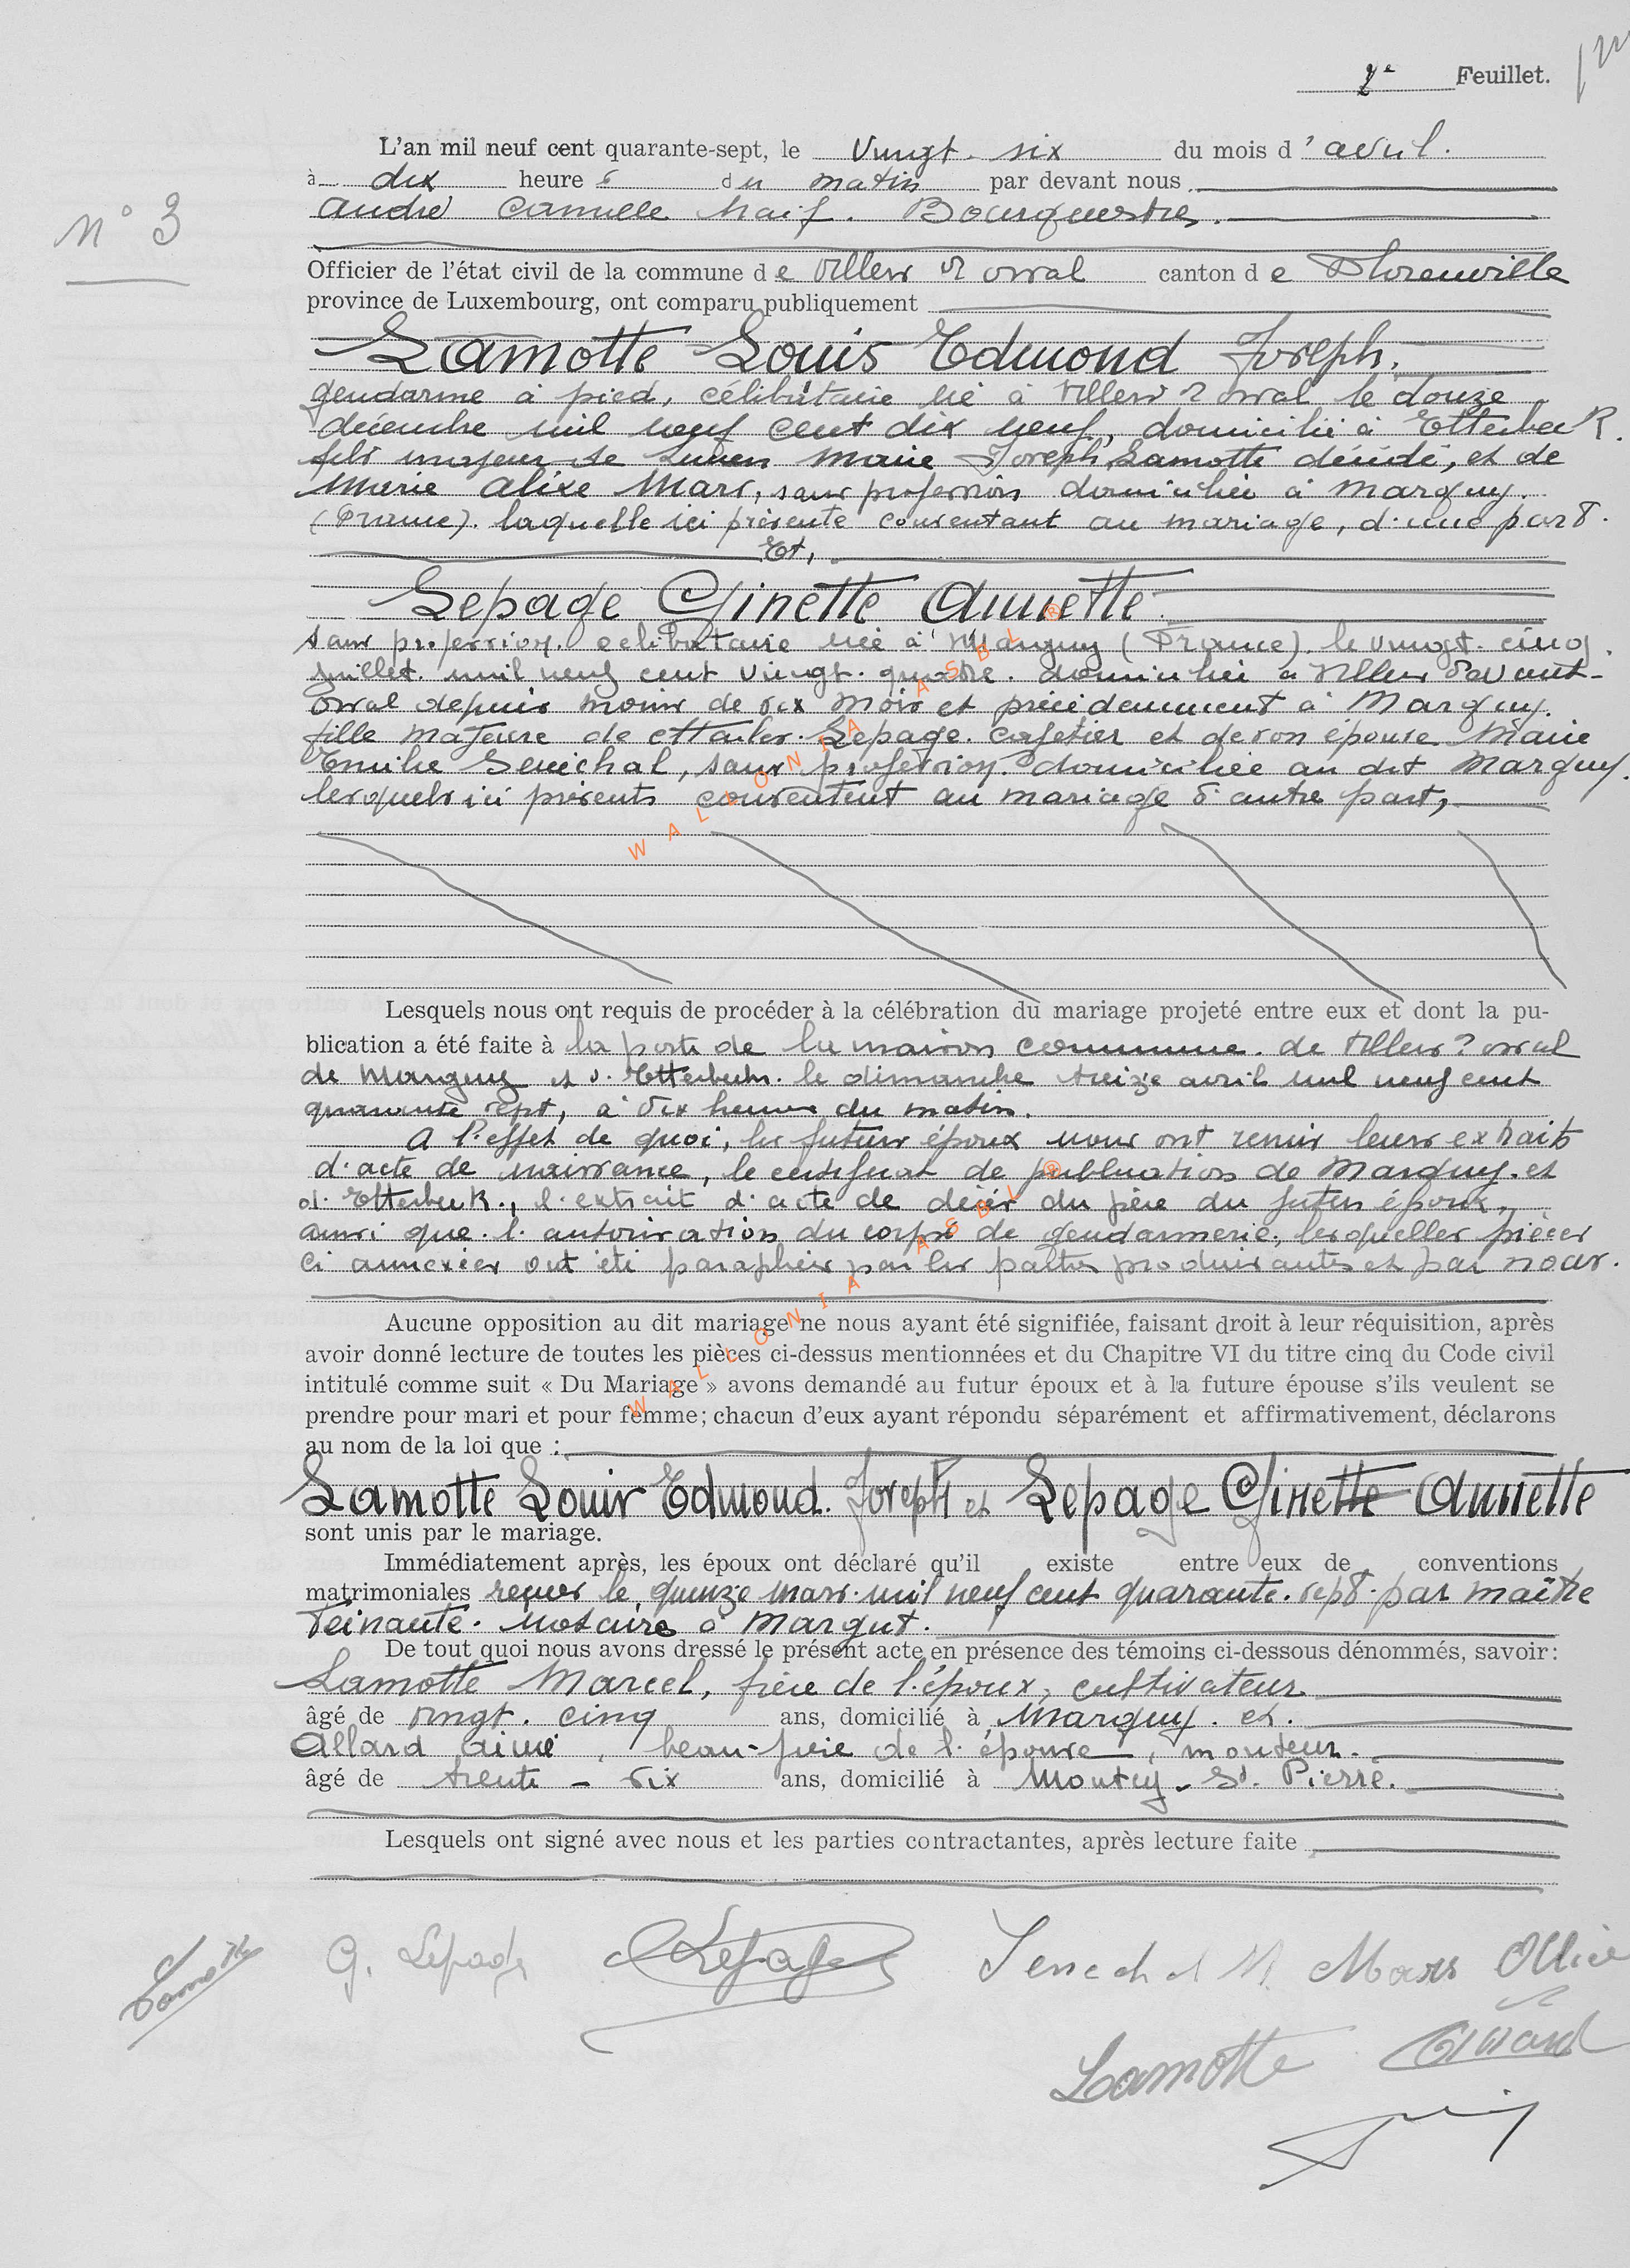 2e Feuillet.
L'an mil neuf cent quarante-sept, le vingt-six du mois d'avril.
à dix heures du matin par devant nous
N° 3
André Camille Naif. Bourguestres.
Officier de l'état civil de la commune de Villers dt orval canton de Florenville
province de Luxembourg, ont comparu publiquement
Lamotte Louis Edmond Joseph,
gendarme à pied, célibataire né à Villers dt orval le douze
décembre mil neuf cent dix neuf, domicilié à Etterbeek.
fils majeur de Lucien Marie Joseph Lamotte décédé, et de
Marie Alixe Mars, sans profession domiciliée à Margny.
(France). laquelle ici présente consentant au mariage, d'une part.
Et,
Lepage Ginette Annette
sans profession. célibataire née à Margny (France). le vingt-cinq
juillet. mil neuf cent vingt-quatre. domiciliée à Villers devant-
orval depuis moins de six mois et précédemment à Margny.
fille majeure de Lepage. cafetier et de son épouse Marie
Emilie Senéchal, sans profession. domiciliée au dit Margny.
lesquels ici présents consentent au mariage d'autre part,
Lesquels nous ont requis de procéder à la célébration du mariage projeté entre eux et dont la pu-
blication a été faite à la porte de la maison commune. de Villers dt orval
de Margny et d'Etterbeek. le dimanche treize avril mil neuf cent
quarante sept, à dix heures du matin.
A l'effet de quoi, les futurs époux nous ont remis leurs extraits
d'acte de naissance, le certificat de publication de Margny. et
d'Etterbeek., l'extrait d'acte de décès du père du futur époux,
ainsi que l'autorisation du corps de gendarmerie, lesquelles pièces
ci annexées ont été paraphées par les parties produisantes et par nous.
Aucune opposition au dit mariage ne nous ayant été signifiée, faisant droit à leur réquisition, après
avoir donné lecture de toutes les pièces ci-dessus mentionnées et du Chapitre VI du titre cinq du Code civil
intitulé comme suit « Du Mariage » avons demandé au futur époux et à la future épouse s'ils veulent se
prendre pour mari et pour femme; chacun d'eux ayant répondu séparément et affirmativement, déclarons
au nom de la loi que :
Lamotte Louis Edmond. Joseph et Lepage Ginette Annette
sont unis par le mariage.
Immédiatement après, les époux ont déclaré qu'il existe entre eux de conventions
matrimoniales reçues le quinze mars. mil neuf cent quarante. sept. par maître
Teinante. notaire à Margut.
De tout quoi nous avons dressé le présent acte en présence des témoins ci-dessous dénommés, savoir:
Lamotte Marcel, frère de l'époux, cultivateur
âgé de vingt. cinq ans, domicilié à Margny. et.
Allard Aimé, beau-frère de l'épouse, monteur.
âgé de trente - six ans, domicilié à Montcy-St. Pierre.
Lesquels ont signé avec nous et les parties contractantes, après lecture faite
Lamotte G. Lepage Lepage Senechal M. Mars
Lamotte
WALLONIA ASBL ®
WALLONIA ASBL ®